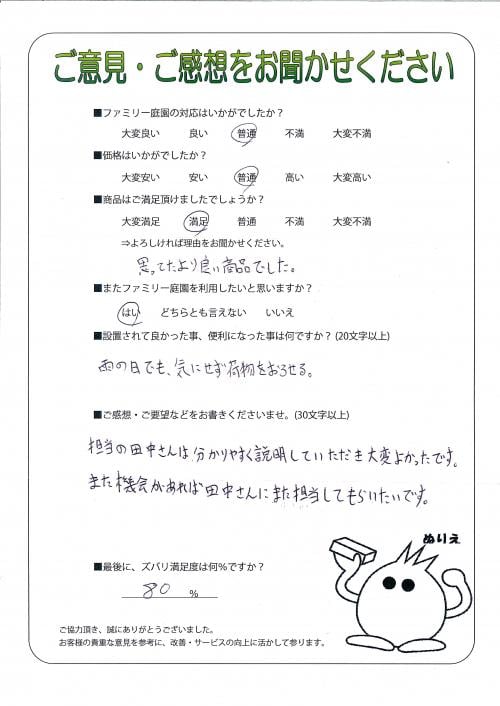 ご意見・ご感想をお聞かせください
■ファミリー庭園の対応はいかがでしたか？
大変良い 良い 普通 不満 大変不満
■価格はいかがでしたか？
大変安い 安い 普通 高い 大変高い
■商品はご満足頂けましたでしょうか？
大変満足 満足 普通 不満 大変不満
⇒よろしければ理由をお聞かせください。
思ってたより良い商品でした。
■またファミリー庭園を利用したいと思いますか？
はい どちらとも言えない いいえ
■設置されて良かった事、便利になった事は何ですか？(20文字以上)
雨の日でも、気にせず荷物をおろせる。
■ご感想・ご要望などをお書きくださいませ。(30文字以上)
担当の田中さんは分かりやすく説明していただき大変よかったです。
また機会があれば田中さんにまた担当してもらいたいです。
ぬりえ
■最後に、ズバリ満足度は何％ですか？
80 ％
ご協力頂き、誠にありがとうございました。
お客様の貴重な意見を参考に、改善・サービスの向上に活かして参ります。